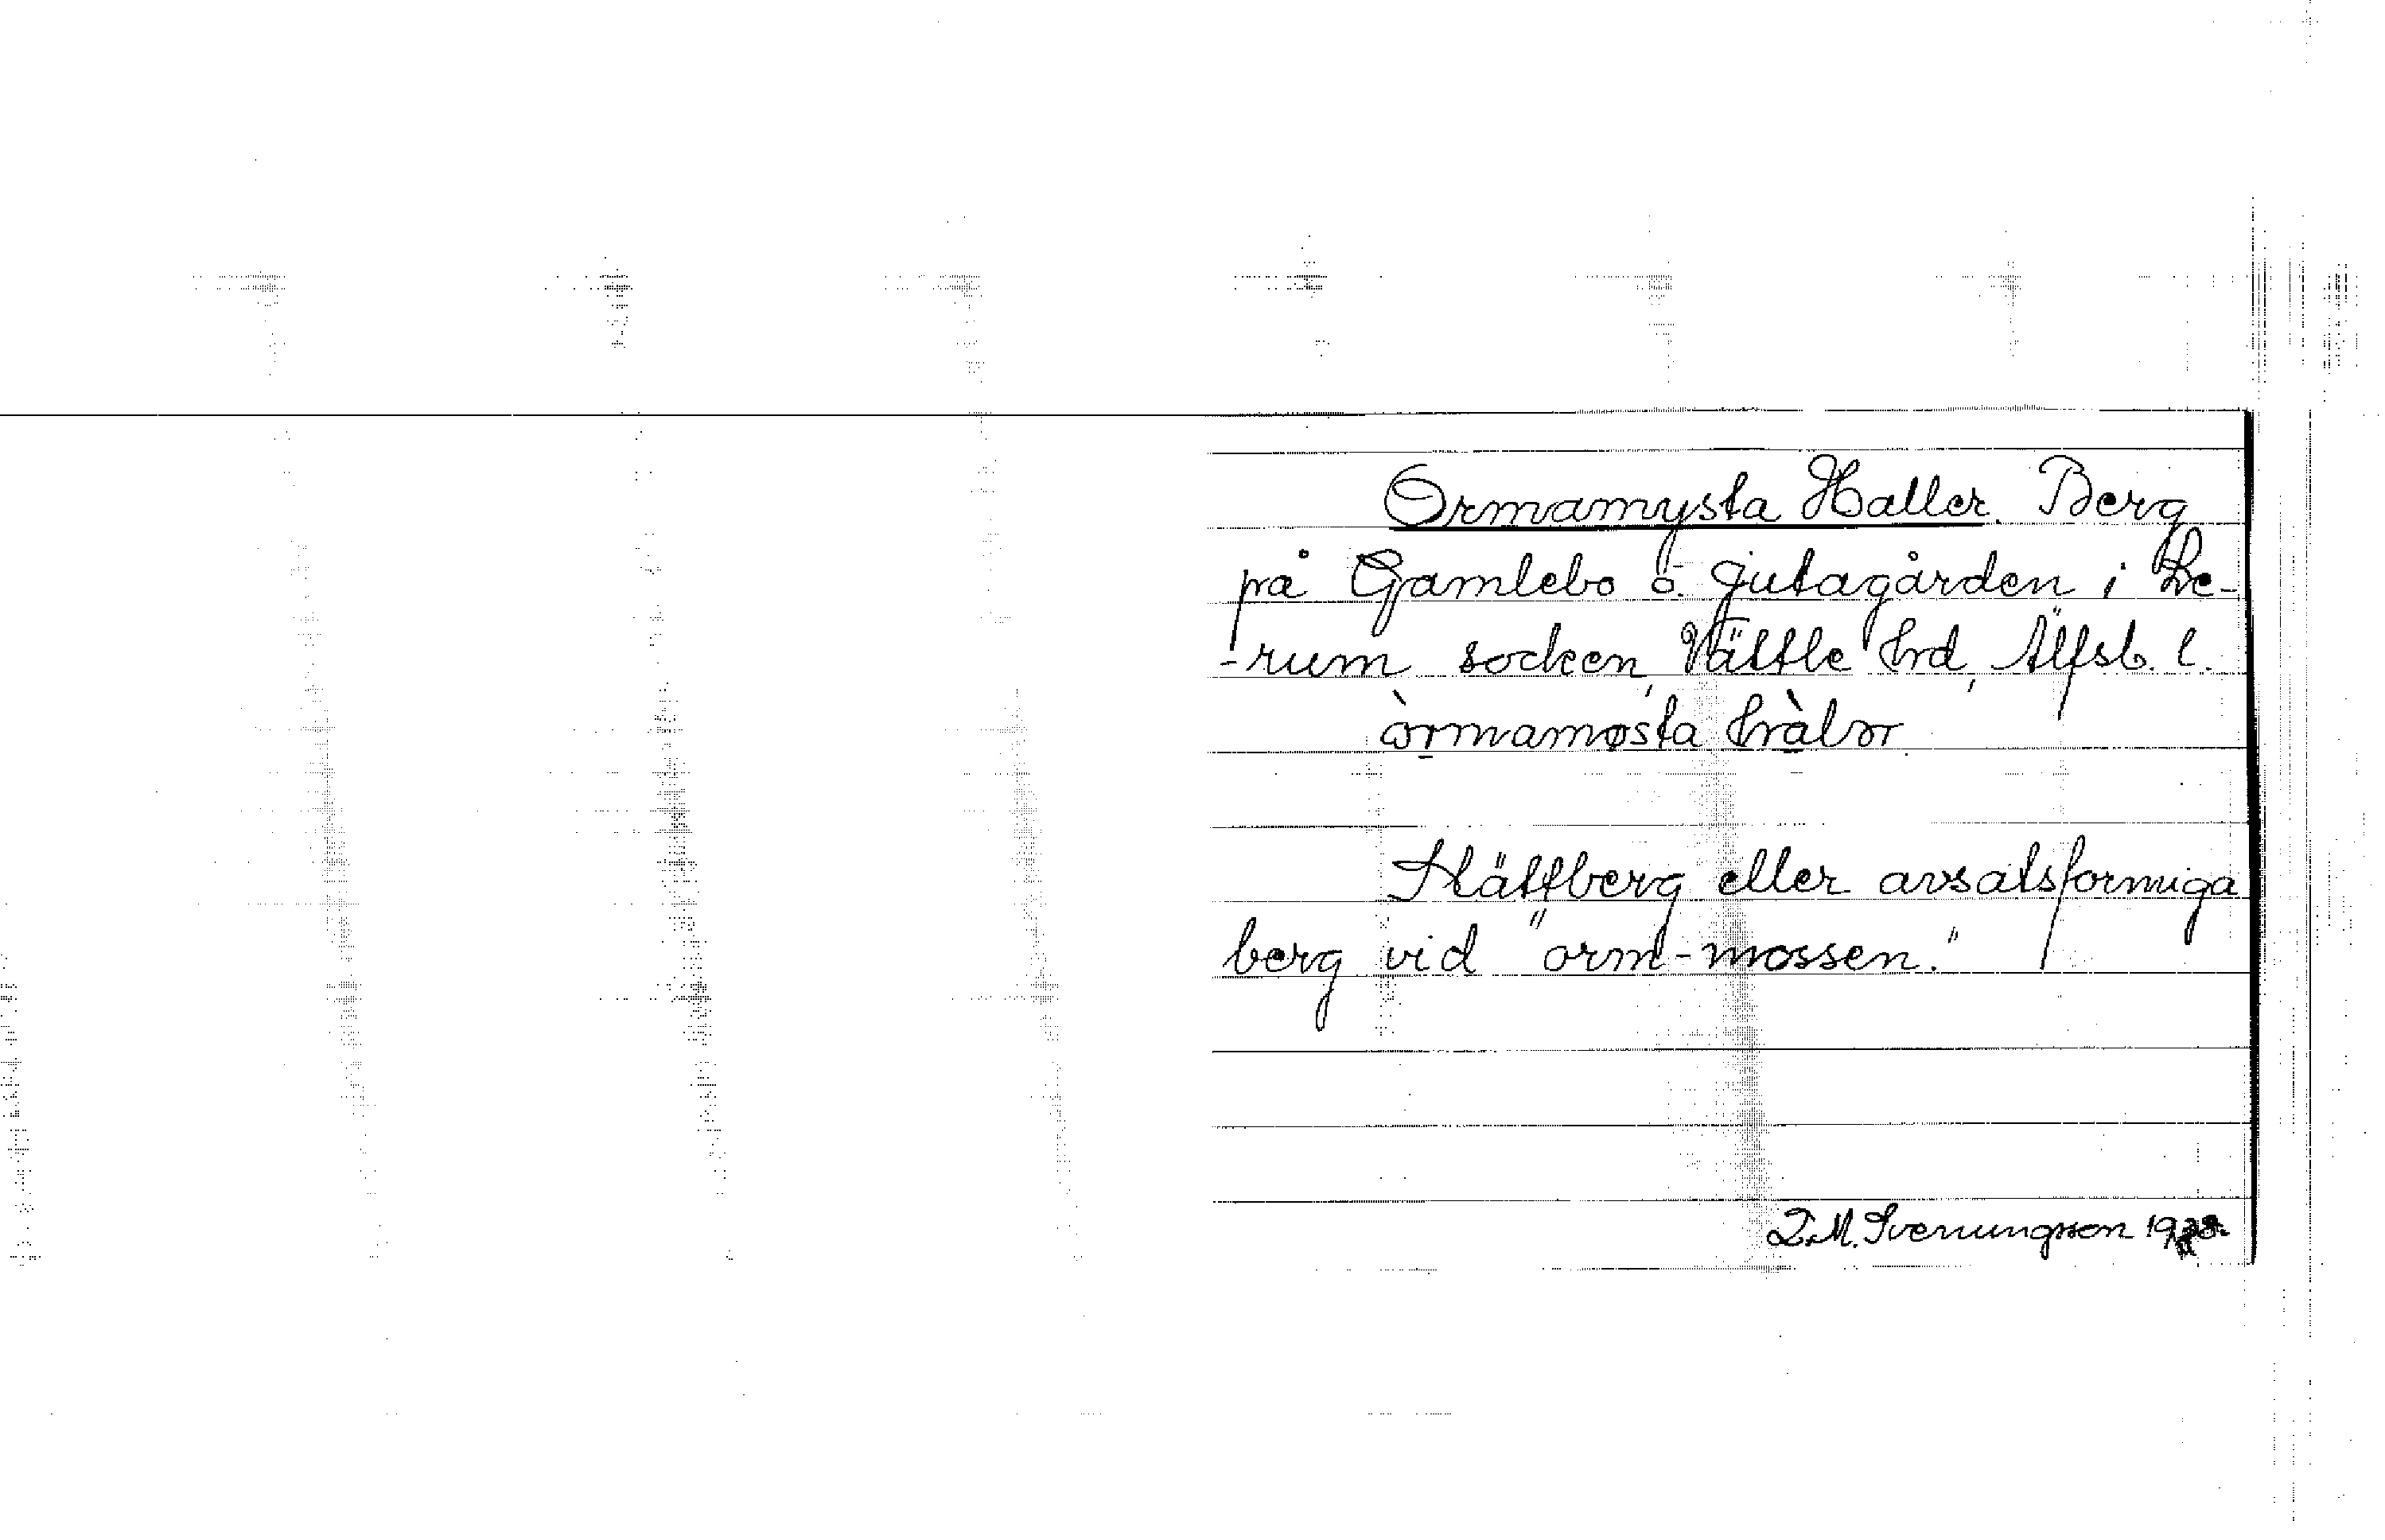 Ormamysta Haller. Berg
på Gamlebo o. Jutagården i Le-
-rum socken, Vättle hrd, Älfsb. l.
òrmamøsta hàlər
Hällberg eller avsatsformiga
berg vid "orm-mossen."
L.M. Svenungsson